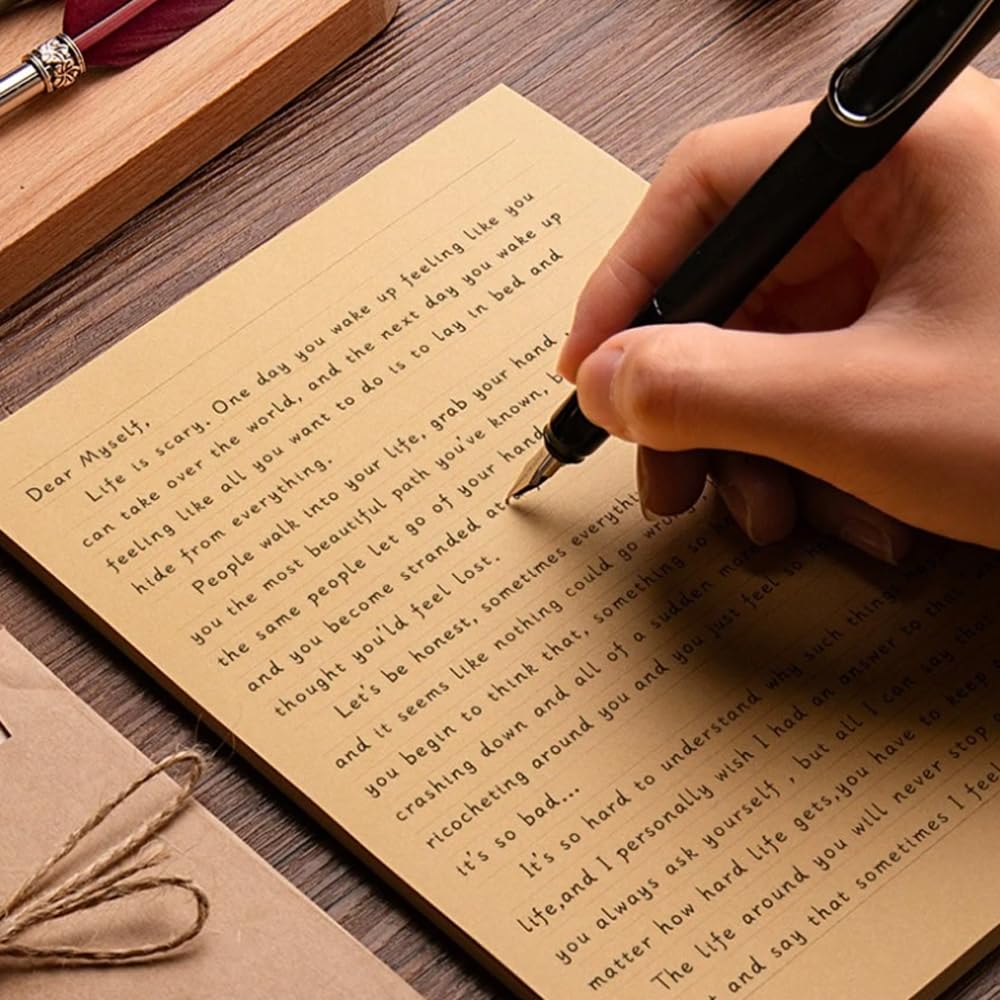 Dear Myself,
Life is scary. One day you wake up feeling like you
can take over the world, and the next day you wake up
feeling like all you want to do is to lay in bed and
hide from everything.
People walk into your life, grab your hand
you the most beautiful path you've known,
the same people let go of your hand
and you become stranded at
thought you'd feel lost.
Let's be honest, sometimes
and it seems like nothing could go wrong
you begin to think that, something so
crashing down and all of a sudden
ricocheting around you and you just feel so
it's so bad...
It's so hard to understand why such
life,and I personally wish I had an answer to
you always ask yourself , but all I can say
matter how hard life gets,you have to keep
The life around you will never stop
and say that sometimes I feel